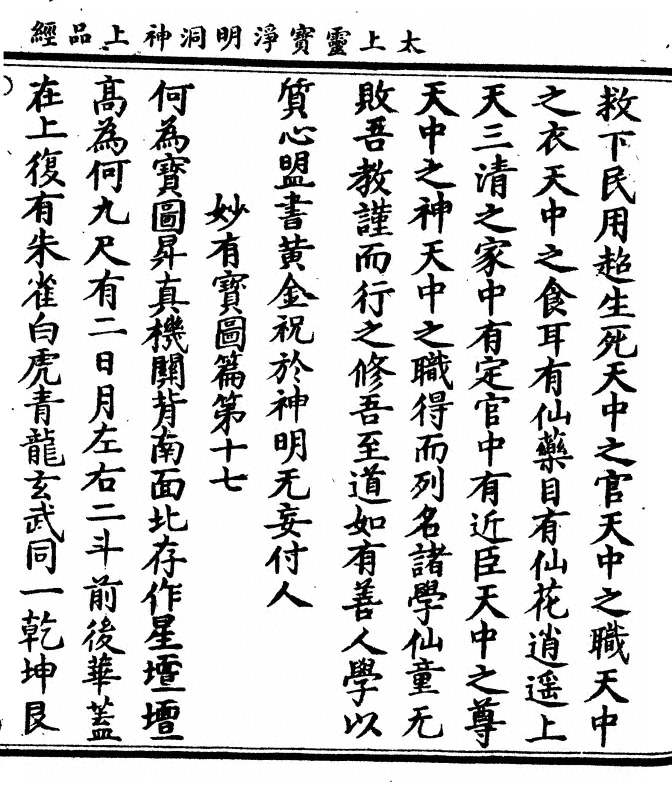 太上靈寶淨明洞神上品經
救下民用超生死天中之官天中之職天中
之衣天中之食耳有仙藥目有仙花逍遥上
天三清之家中有定官中有近臣天中之尊
天中之神天中之職得而列名諸學仙童无
敗吾教謹而行之修吾至道如有善人學以
質心盟書黄金祝於神明无妄付人
妙有寶圖篇第十七
何為寶圖昇真機關背南面北存作星壇壇
髙為何九尺有二日月左右二斗前後華蓋
在上復有朱雀白虎青龍玄武同一乾坤艮